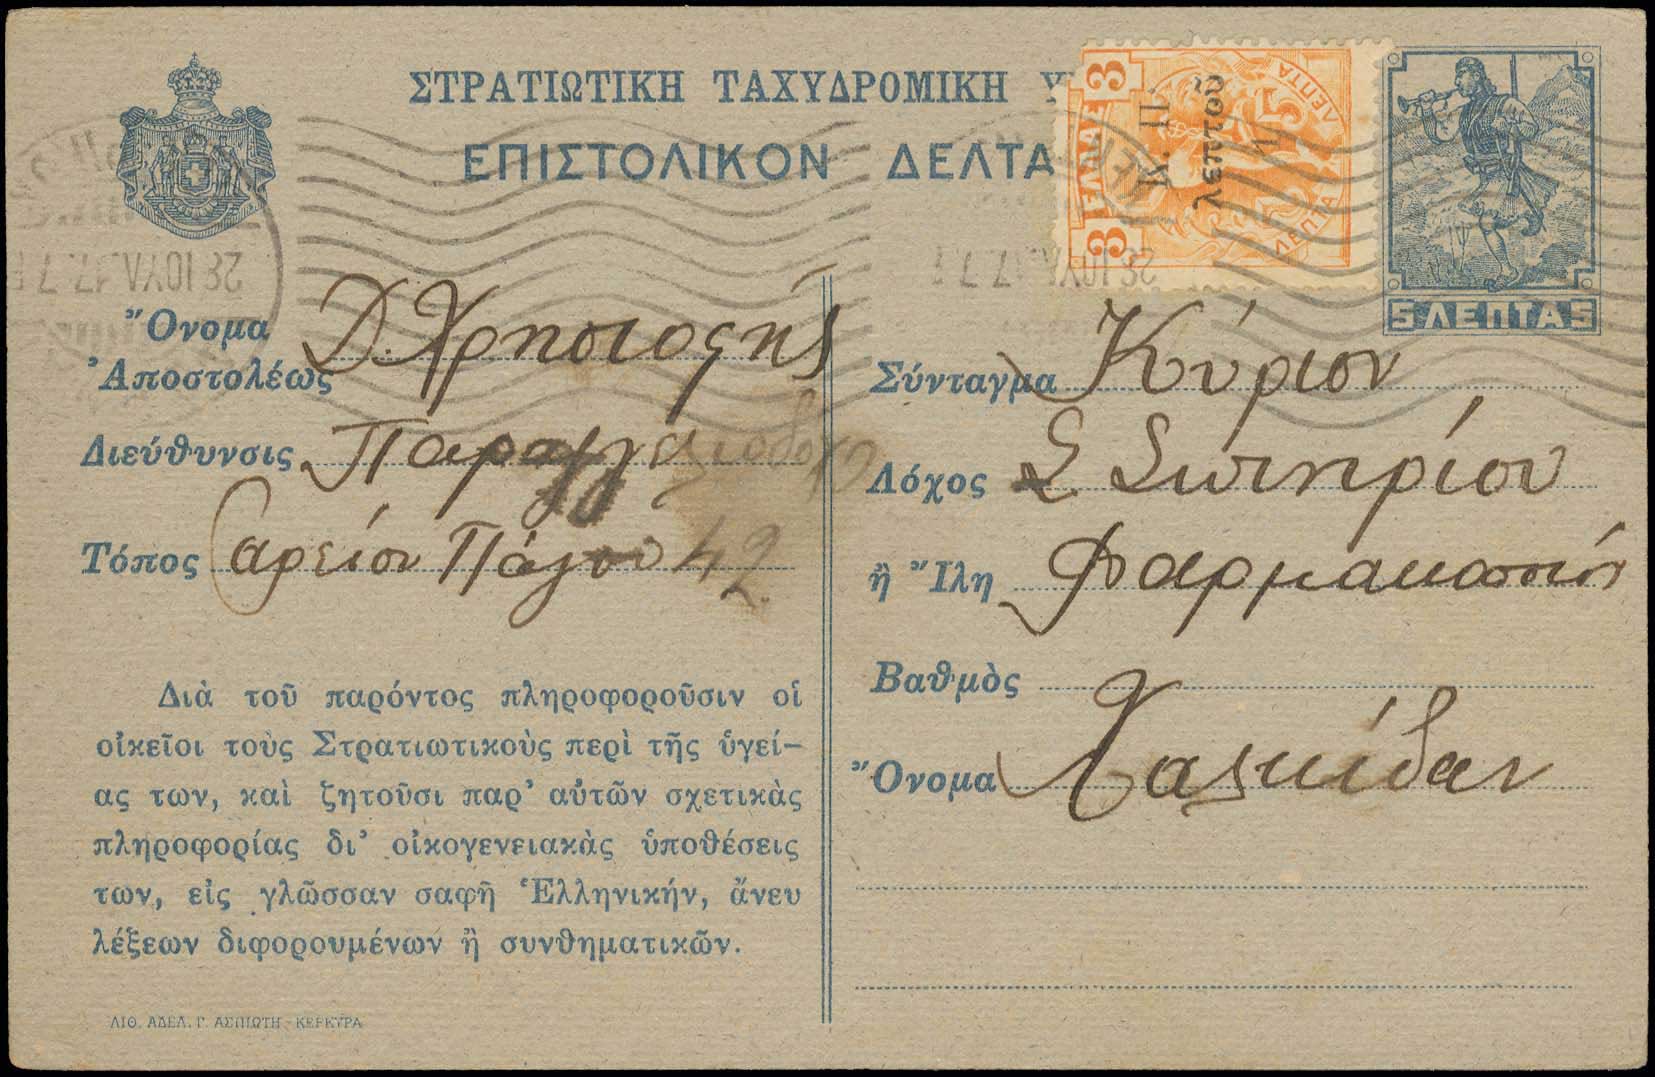 ΣΤΡΑΤΙΩΤΙΚΗ ΤΑΧΥΔΡΟΜΙΚΗ Υ
ΕΠΙΣΤΟΛΙΚΟΝ ΔΕΛΤΑ
ΕΛΛΑΣ
3 3
5
ΛΕΠΤΑ ΛΕΠΤΑ
Κ. Π.
λεπτοῦ
1
5 ΛΕΠΤΑ 5
28 ΙΟΥΛ. 17. 7
28 ΙΟΥΛ 17. 7
Ὄνομα
Ἀποστολέως Δ. Χρηστοςής
Διεύθυνσις Παραγγελιοδόχο
Τόπος Αρείου Πάγου 42
Διὰ τοῦ παρόντος πληροφοροῦσιν οἱ
οἰκεῖοι τοὺς Στρατιωτικοὺς περὶ τῆς ὑγεί–
ας των, καὶ ζητοῦσι παρ’ αὐτῶν σχετικὰς
πληροφορίας δι’ οἰκογενειακὰς ὑποθέσεις
των, εἰς γλῶσσαν σαφῆ Ἑλληνικήν, ἄνευ
λέξεων διφορουμένων ἢ συνθηματικῶν.
ΛΙΘ. ΑΔΕΛ. Γ. ΑΣΠΙΩΤΗ - ΚΕΡΚΥΡΑ
Σύνταγμα Κύριον
Λόχος Σ Σωτηρίου
ἢ Ἴλη Φαρμακοποιόν
Βαθμὸς
Ὄνομα Χαλκίδαν